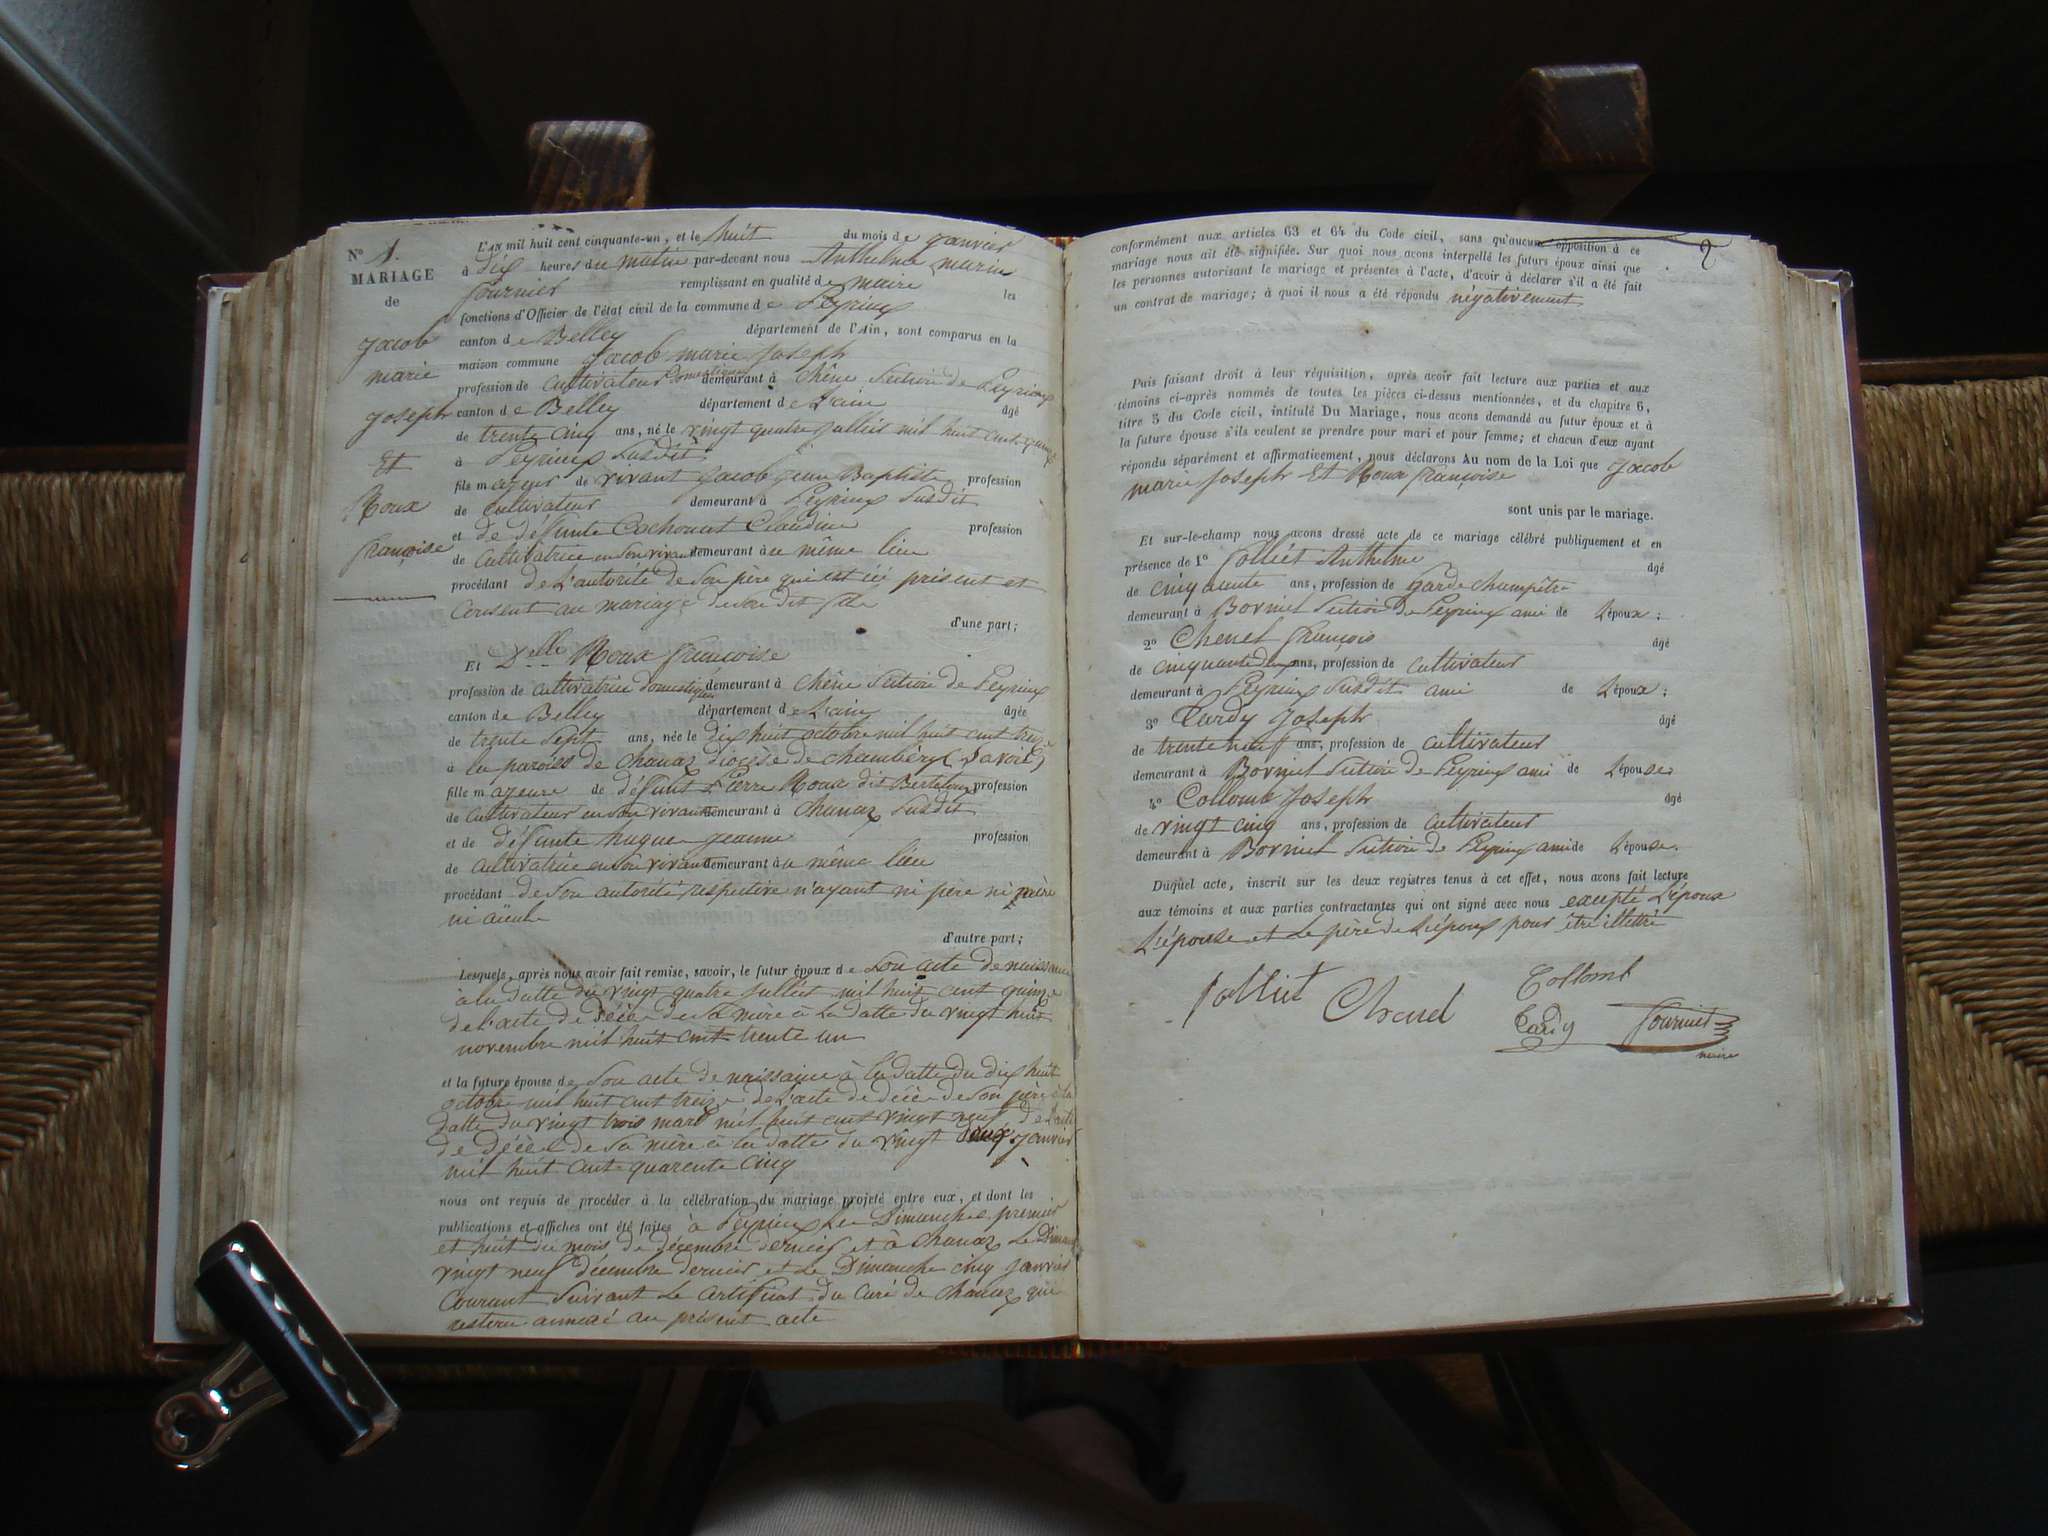 N° 1.
MARIAGE
de
Jacob
marie
Joseph
Et
Roux
françoise
L'AN mil huit cent cinquante-un, et le huit du mois de janvier
à dix heures du matin par-devant nous Anthelme marin
fournier remplissant en qualité de maire les
fonctions d'Officier de l'état civil de la commune de Peyrieux
canton de Belley département de l'Ain, sont comparus en la
maison commune Jacob marie Joseph
profession de cultivateur Domestique demeurant à chêne Section de Peyrieux
canton de Belley département de L'ain âgé
de trente cinq ans, né le vingt quatre Julliet mil huit cent quinze
à Peyrieux Susdit
fils majeur de vivant Jacob jean Baptiste profession
de cultivateur demeurant à Peyrieux Susdit
et de défunte Claudine profession
de cultivatrice en son vivant demeurant à u même lieu
procédant de L'autorité de Son père qui est ici présent et
Consent au mariage de son dit fils
d'une part;
Et Delle Roux françoise
profession de cultivatrice domestique demeurant à chêne Section de Peyrieux
canton de Belley département de L'ain âgée
de trente Sept ans, née le dix huit octobre mil huit cent treize
à la paroiss de chanaz diocèse de chambéry (Savoie)
fille majeure de défunt Pierre Roux dit Berteloux profession
de cultivateur en son vivant demeurant à Chanaz Susdit
et de défunte hugue jeanne profession
de cultivatrice en son vivant demeurant à u même lieu
procédant de Son autorité respective n'ayant ni père ni mère
ni aïeule
d'autre part;
Lesquels, après nous avoir fait remise, savoir, le futur époux de Son acte de naissance
à la datte du vingt quatre Julliet mil huit cent quinze
de l'acte de décès de Sa mère à La datte du vingt huit
novembre mil huit cent trente un
et la future épouse de Son acte de naissance à la datte du dix huit
octobre mil huit cent treize de L'acte de décès de Son père à la
datte du vingt trois mars mil huit cent vingt neuf de L'acte
de décès de Sa mère à la datte du vingt deux janvier
mil huit cent quarente cinq
nous ont requis de procéder à la célébration du mariage projeté entre eux, et dont les
publications et affiches ont été faites à Peyrieux Les Dimanches premier
et huit du mois de décembre dernier et à chanaz Le Dimanche
vingt neuf décembre dernier et Le Dimanche cinq janvier
Courant Suivant Le certificat du Curé de chanaz qui
restera annexé au présent acte
2
conformément aux articles 63 et 64 du Code civil, sans qu'aucune opposition à ce
mariage nous ait été signifiée. Sur quoi nous avons interpellé les futurs époux ainsi que
les personnes autorisant le mariage et présentes à l'acte, d'avoir à déclarer s'il a été fait
un contrat de mariage; à quoi il nous a été répondu négativement
Puis faisant droit à leur réquisition, après avoir fait lecture aux parties et aux
témoins ci-après nommés de toutes les pièces ci-dessus mentionnées, et du chapitre 6,
titre 5 du Code civil, intitulé Du Mariage, nous avons demandé au futur époux et à
la future épouse s'ils veulent se prendre pour mari et pour femme; et chacun d'eux ayant
répondu séparément et affirmativement, nous déclarons Au nom de la Loi que Jacob
marie Joseph Et Roux françoise
sont unis par le mariage.
Et sur-le-champ nous avons dressé acte de ce mariage célébré publiquement et en
présence de 1° Jolliet Anthelme âgé
de cinquante ans, profession de garde champêtre
demeurant à Bornet Section de Peyrieux ami de L'époux;
2° françois âgé
de cinquante deux ans, profession de cultivateur
demeurant à Peyrieux Susdit ami de L'époux;
3° Tardy Joseph âgé
de trente neuf ans, profession de cultivateur
demeurant à Bornet Section de Peyrieux ami de L'épouse
4° Collomb Joseph âgé
de vingt cinq ans, profession de cultivateur
demeurant à Bornet Section de Peyrieux ami de L'épouse.
Duquel acte, inscrit sur les deux registres tenus à cet effet, nous avons fait lecture
aux témoins et aux parties contractantes qui ont signé avec nous excepté L'époux
L'épouse et Le père de L'époux pour être illettré
Jolliet
Collomb
Tardy
fournier
maire